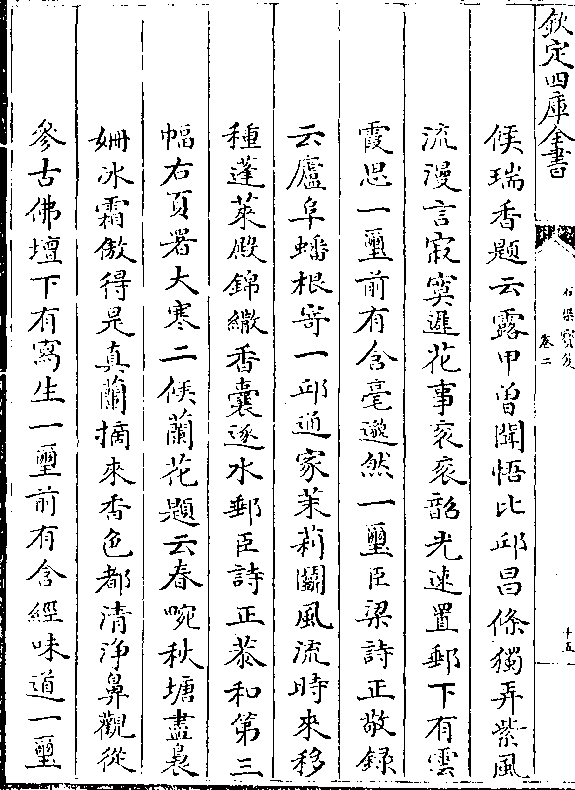 欽定四庫全書
石渠寶笈
卷二
十五
候瑞香題云露甲曽聞悟比邱昌條獨弄紫風
流漫言寂寞遲花事衮衮韶光速置郵下有雲
霞思一璽前有含毫邈然一璽臣梁詩正敬録
云廬阜蟠根寄一邱逈家茉莉關風流時來移
種蓬萊殿錦繖香囊逐水郵臣詩正恭和第三
幅右頁署大寒二候蘭花題云春畹秋塘盡裊
姍冰霜傲得是真蘭摘來香色都清浄鼻觀從
參古佛壇下有寫生一璽前有含經味道一璽